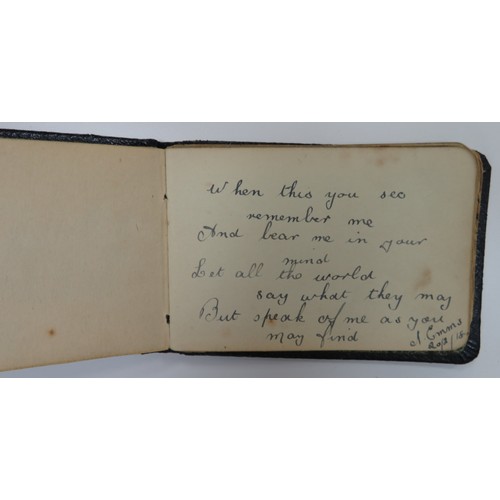 When this you see
remember me
And bear me in your
mind
Let all the world
say what they may
But speak of me as you
may find
J Emms
/18